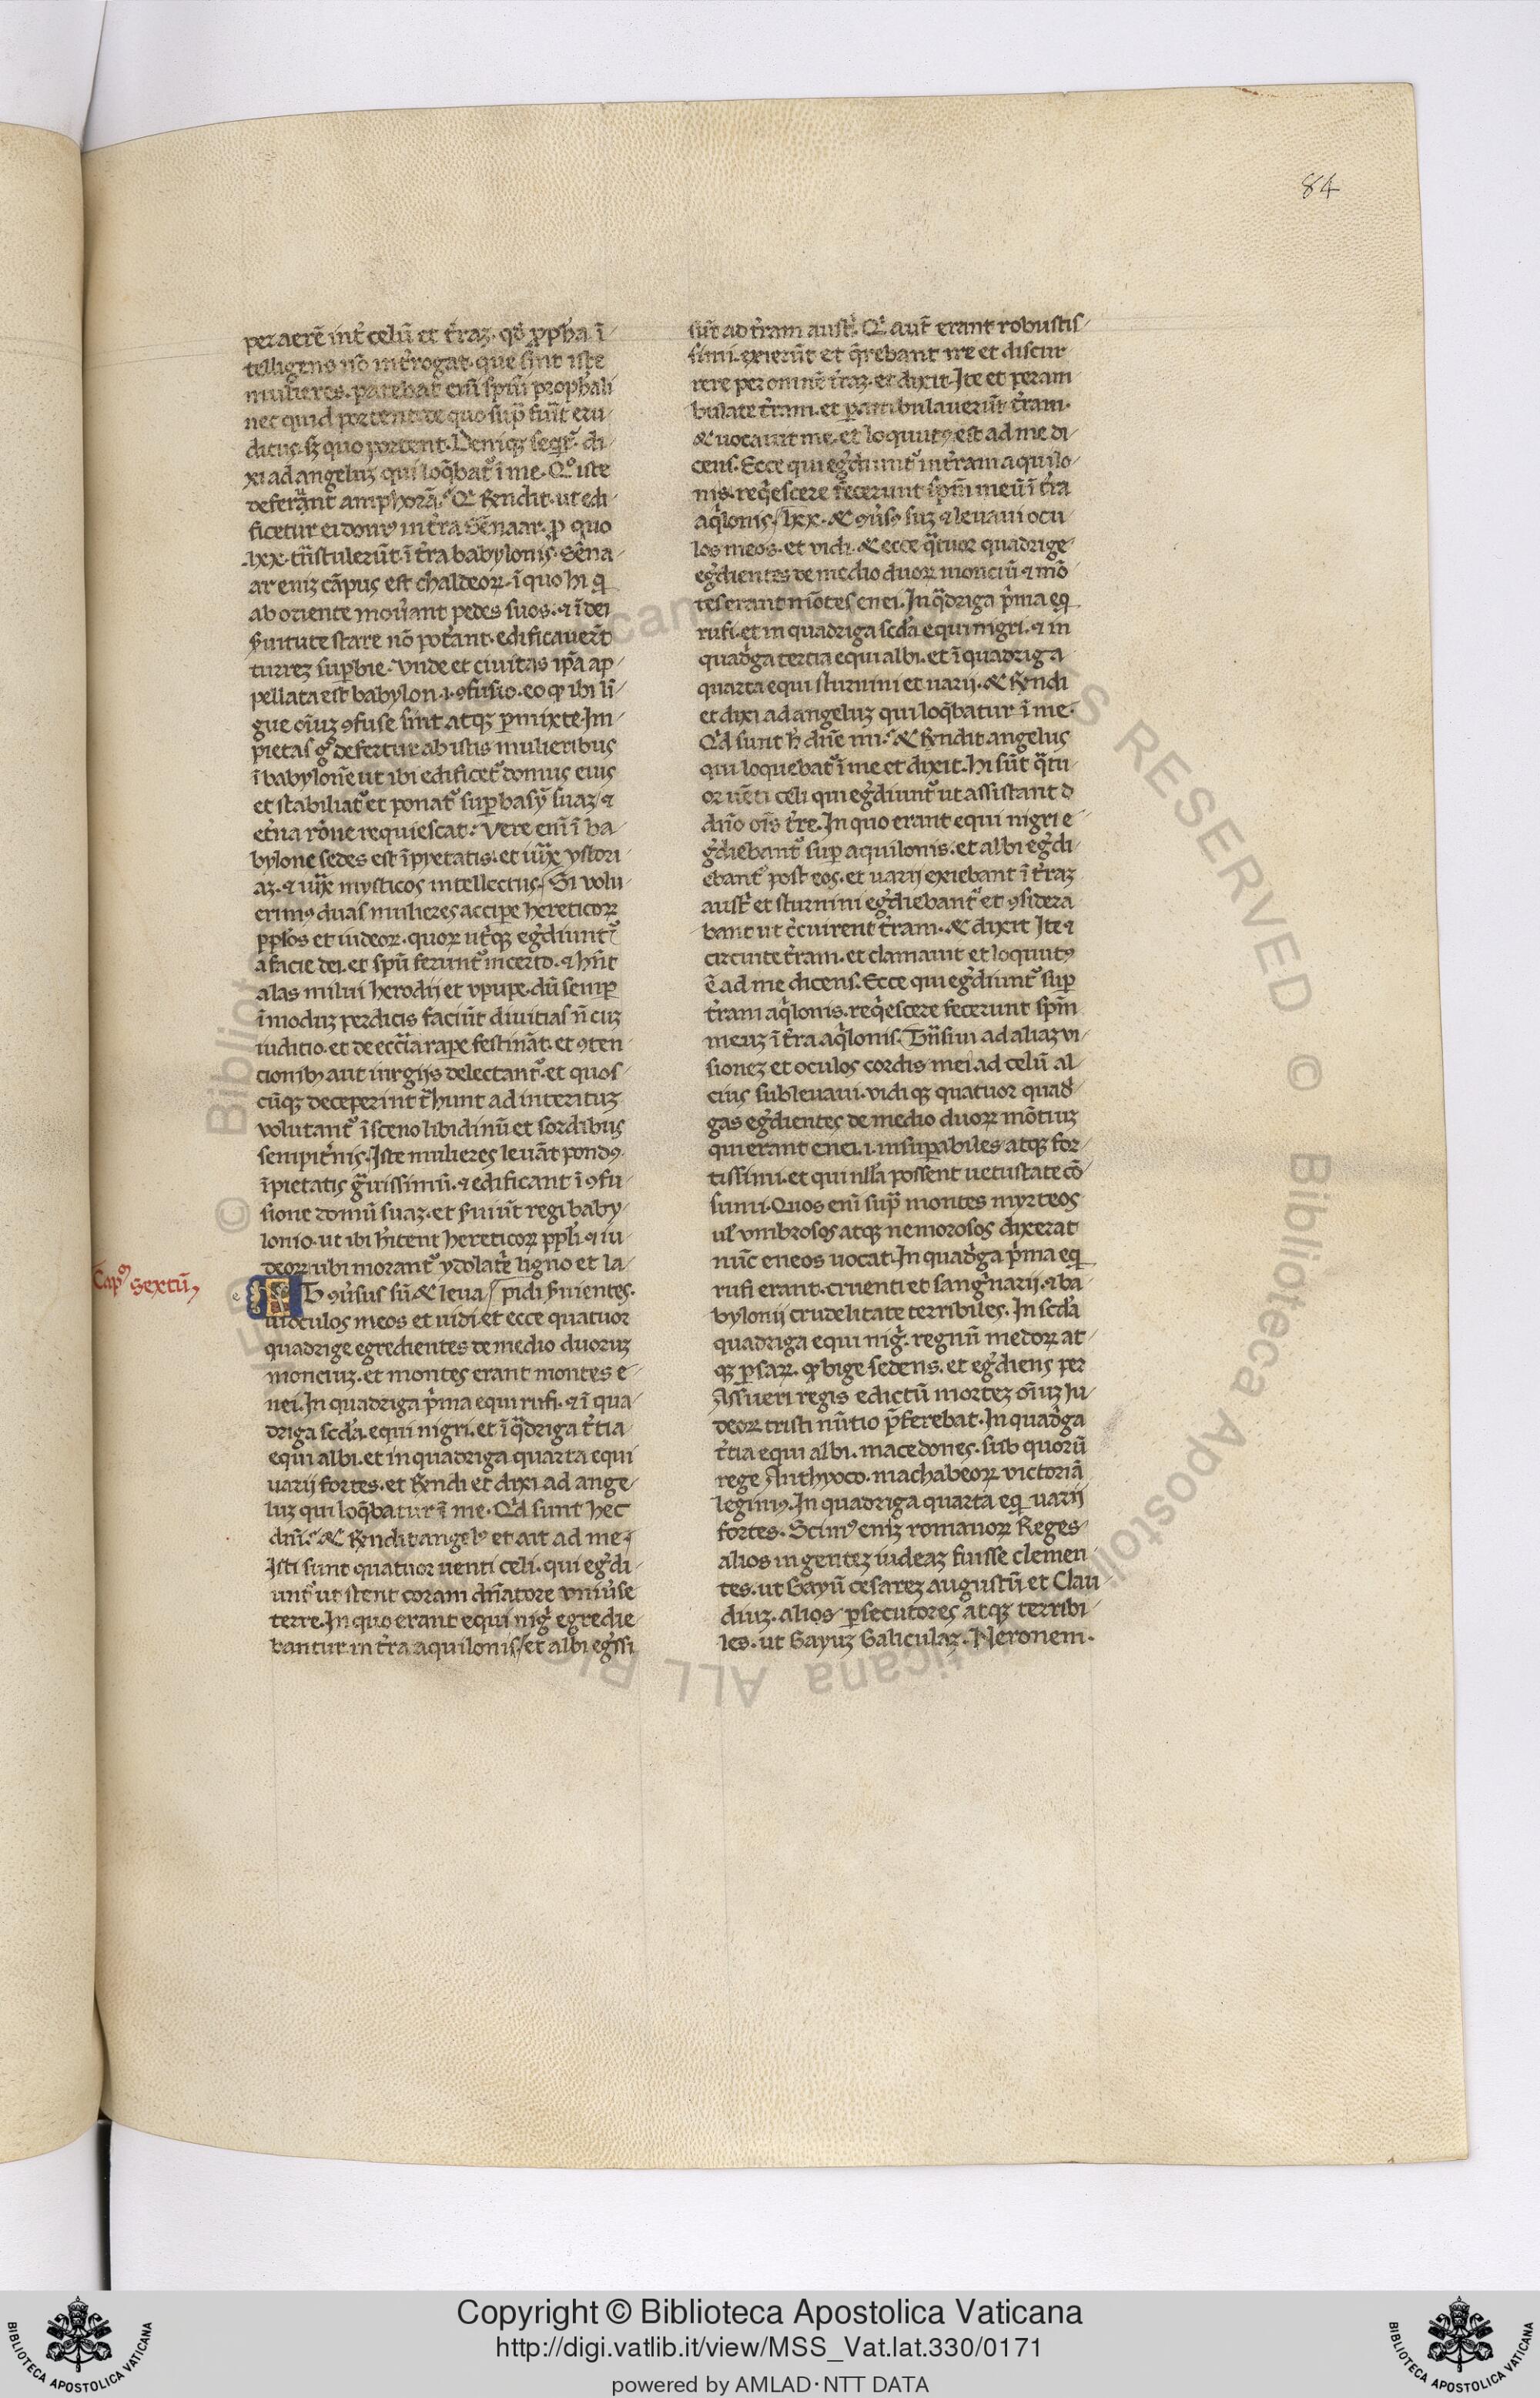 84
per aerē int̾ celũ et t̃raz. qđ ꝓpħa ĩ
telligens nõ int̾rogat. que sint iste
mulieres. patebat eĩ spũ prophali
nec quid portent. de quo sup̃ fũt eru
ditus. sꝫ quo portent. Deniqꝫ seqr̃. di
xi ad angeluz qui loq̃bat᷑ ĩ me. Qͦ iste
deferũnt amphorã? Et rñdit. ut edi
ficetur ei domꝰ in t̃ra Sẽnaar. ꝓ quo
.lxx. trãstulerũt. ĩ t̃ra babylonis. Sẽna
ar eniz cãpus est chaldeoꝝ. ĩ quo hi q̇
ab oriente mou̾ant pedes suos. ⁊ ĩ dei
s̾uitute stare nõ pot̾ant. edificauer̃t
turrez suꝑbie. Vnde et ciuitas ip̃a ap
pellata est babylon .i. ꝯfusio. eo ꝙ ibi lĩ
gue oĩuz ꝯfuse sint atqꝫ ꝑmixte. Im
pietas gͦ defertur ab istis mulieribus
ĩ babylone ut ibi edificet᷑ domus eius
et stabiliat᷑ et ponat᷑ suꝑ basỹ suaz. ⁊
et̾na rõne requiescat: Vere eĩ ĩ ba
bylone sedes est ĩpietatis. et iuxͣ ystori
az. ⁊ iuxͣ mysticos intellectus. Si volu
erimꝰ duas mulieres accipe hereticoꝝ
pplõs et iudeoꝝ. quoꝝ ut̾qꝫ egr̾diunt᷑
a facie dei. et spũ ferunt᷑ incerto. ⁊ hñt
alas milui herodii et vpupe. dũ semꝑ
ĩ moduz perdicis faciũt diuitias ñ cuz
iuditio. et de ecc̃ia rape festinãt. et ꝯten
cionibꝫ aut iurgijs delectant᷑. et quos
cũqꝫ deceperint t̃hunt ad interituz
volutant᷑ ĩ sceno libidinũ et sordibus
sempit̾nis. Iste mulieres leuãt pondꝰ
ĩpietatis gͣuissimũ. ⁊ edificant ĩ ꝯfu
sione domũ suaz. et s̾uiũt regi baby
lonio. ut ibi hitent hereticoꝝ ppli. ⁊ iu
deoꝝ. ubi morant᷑ ydolatre ligno et la
Cap̊ Sextũ
Et ꝯũsus sũ. ⁊ leua pidi s̾uientes.
ui oculos meos et uidi. et ecce quatuor
quadrige egredientes de medio duoruz
monciuz. et montes erant montes e
nei. In quadriga p̾ma equi rufi. ⁊ ĩ qua
driga sc̃da equi nigri. et ĩ q̃driga t̾tia
equi albi. et in quadriga quarta equi
uarij fortes. et rñdi et dixi ad ange
luz qui loq̃batur ĩ me. Qͥd sunt hec
dñi? Et rñdit angelꝰ et ait ad me
Isti sunt quatuor uenti celi. qui egr̾di
unt᷑ ut stent coram dñatore vniu̾se
terre. In quo erant equi nigͥ egredie
bantur in t̃ra aquilonis. et albi egr̾ssi
sũt ad t̃ram austͥ. Qͥ aut̃ erant robustis
simi. exierũt et q̃rebant ire et discur
rere per omnẽ t̃raz. et dixit. Ite et peram
bulate t̃ram. et ꝑambulauerũt t̃ram.
Et uocauit me. et loquutꝰ est ad me di
cens. Ecce qui egr̾diunt᷑ in t̃ram aquilo
nis. reqͥescere fecerunt spm̃ meũ ĩ t̃ra
aqͥlonis. lxx. Et ꝯũsꝰ suz ⁊ leuaui ocu
los meos. et vidi. Et ecce qͣtuor quadrige
egr̾dientes de medio duoꝝ monciũ. ⁊ mõ
tes erant mõtes enei. In qͣdriga p̾ma eq̇
rufi. et in quadriga sc̃da equi nigri. ⁊ in
quadͥga tertia equi albi. et ĩ quadriga
quarta equi sturnini et uarij. Et rñdi
et dixi ad angeluz qui loq̃batur ĩ me.
Qͥd sunt h̾ dñe mi? Et rñdit angelus
qui loquebat᷑ ĩ me et dixit. Hi sũt qͣtu
or uẽti celi qui egr̾diunt᷑ ut assistant d
dño oĩs t̃re. In quo erant equi nigri e
gr̾diebant᷑ suꝑ aquilonis. et albi egr̾di
ebant᷑ post eos. et uarij exiebant ĩ t̃raz
austͥ et sturnini egr̾diebant᷑ et ꝯsidera
bant ut cͥcuirent t̃ram. Et dixit Ite ⁊
circuite t̃ram. et clamauit et loquutꝰ
ẽ ad me dicens. Ecce qui egr̾diunt᷑ suꝑ
t̃ram aqͥlonis. reqͥescere fecerunt spm̃
meuz ĩ t̃ra aqͥlonis. Trãsiui ad aliaz vi
sionez et oculos cordis mei ad celũ al
cius subleuaui. vidi qꝫ quatuor quadͥ
gas egr̾dientes de medio duoꝝ mõtiuz
qui erant enei .i. insuꝑabiles atqꝫ for
tissimi. et qui nlla possent uetustate cõ
sumi. Quos eni supͣ montes myrteos
ul̾ vmbrosos atqꝫ nemorosos dixerat
nũc eneos uocat. In quadͥga p̾ma eq̇
rufi erant. cruenti et sangͥnarij. ⁊ ba
bylonij crudelitate terribiles. In sc̃da
quadriga equi nigͥ. regnũ medoꝝ at
qꝫ ꝑsaꝝ. ꝙ bige sedens. et egr̾diens per
Assueri regis edictũ mortez oĩuz Iu
deoꝝ tristi nũtio p̃ferebat. In quadͥga
t̾tia equi albi. macedones. sub quorũ
rege Anthyoco. machabeoꝝ victoriã
legimꝰ. In quadriga quarta eq̇ uarij
fortes. Scimꝰ eniz romanoꝝ Reges
alios in gentez iudeaz fuisse clemen
tes. ut Gayũ cesarez augustũ et Clau
diuz. alios ꝑsecutores atqꝫ terribi
les. ut Gayuz Galiculaz. Neronem.
Copyright © Biblioteca Apostolica Vaticana
http://digi.vatlib.it/view/MSS_Vat.lat.330/0171
powered by AMLAD·NTT DATA